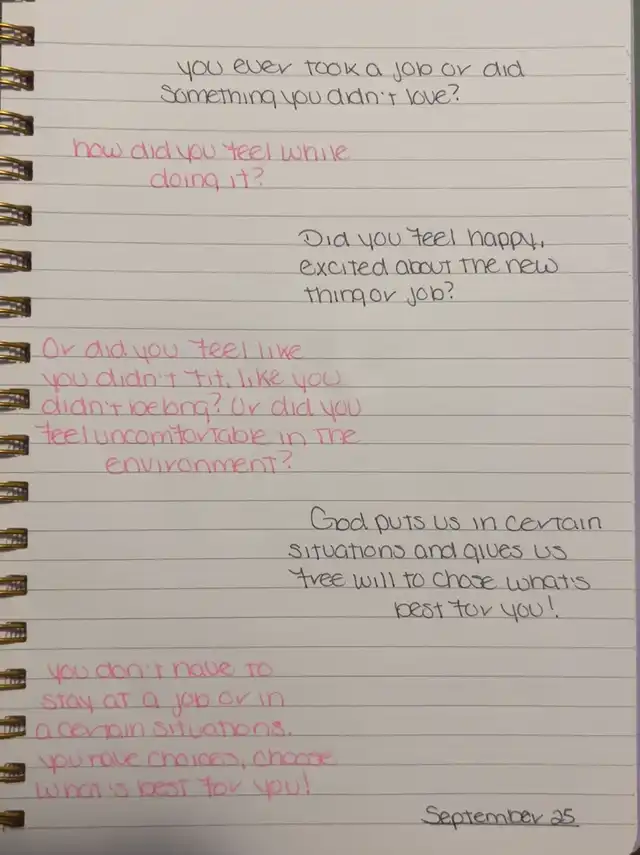 you ever took a job or did
something you didn't love?
how did you feel while
doing it?
Did you feel happy,
excited about the new
thing or job?
Or did you feel like
you didn't fit, like you
didn't belong? Or did you
feel uncomfortable in the
environment?
God puts us in certain
situations and gives us
free will to chose what's
best for you!
you don't have to
stay at a job or in
a certain situations.
you have choices, choose
what's best for you!
September 25